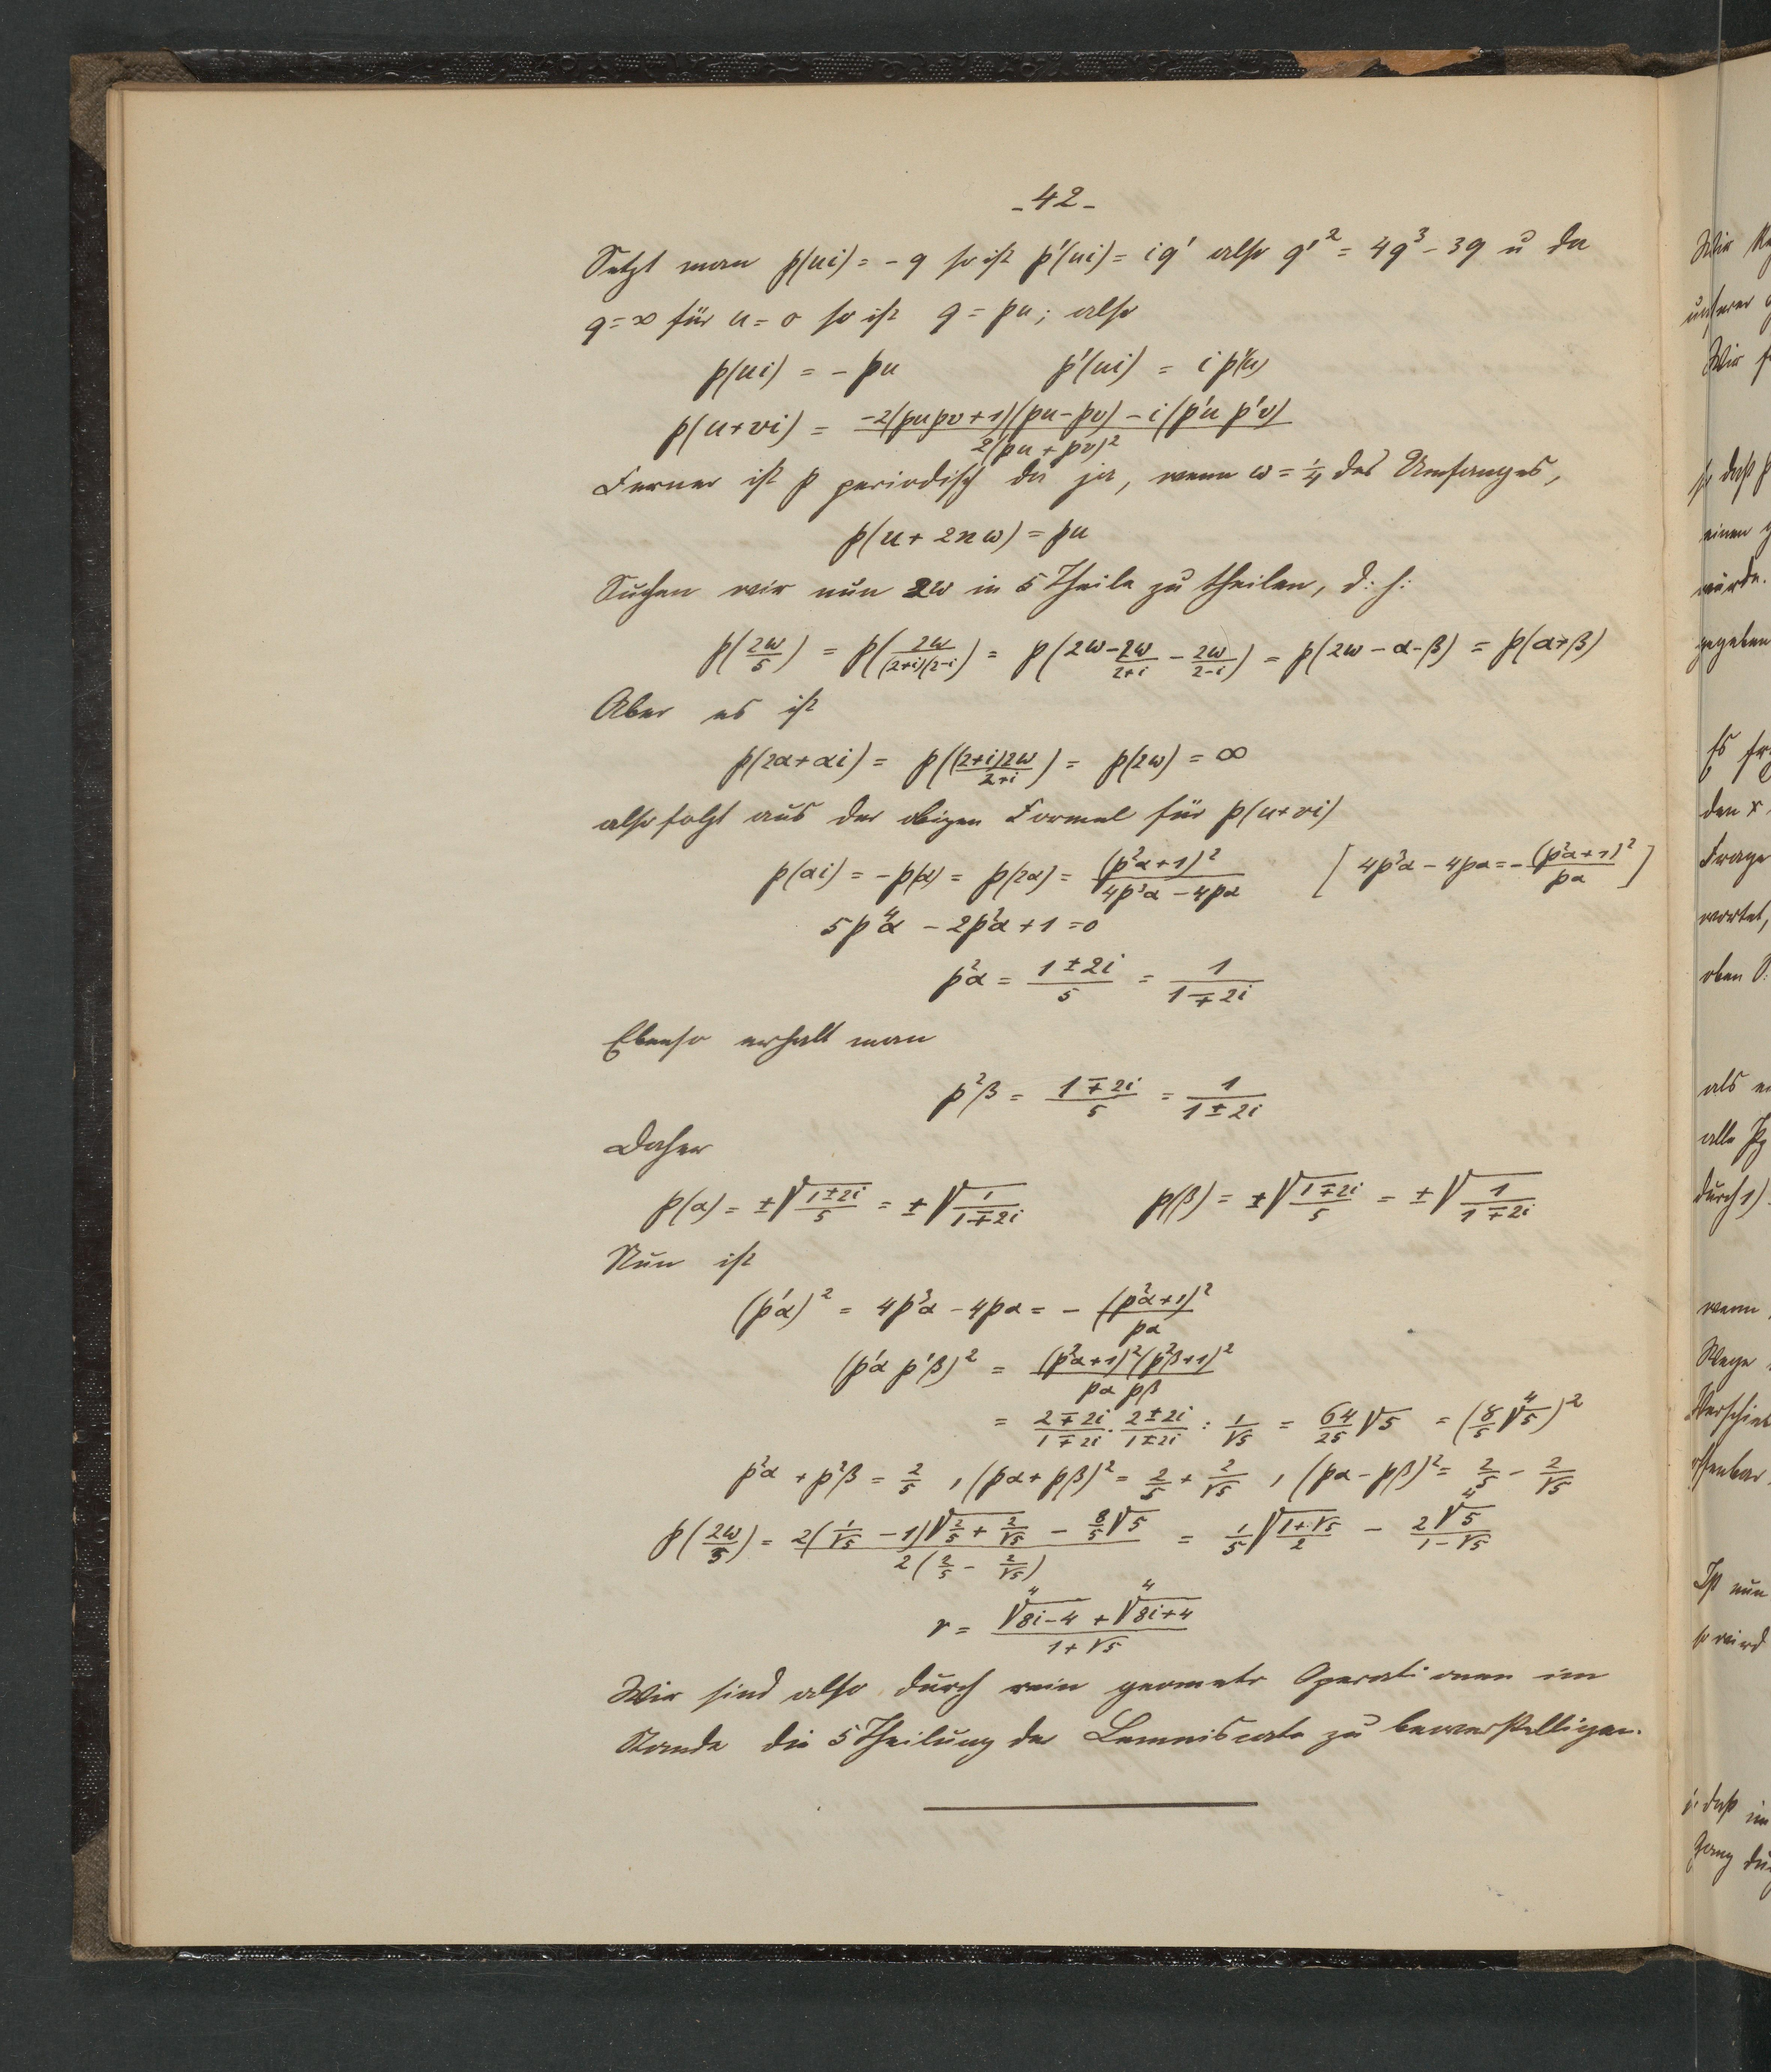 - 42 -
Setzt man p(ui) = - q so ist p'(ui) = iq' also q'² = 4q³ - 3q u da
q = ∞ für u = 0 so ist q = pu; also
p(ui) = - pu p'(ui) = i p'(u)
p(u+vi) = (-2(pu pv + 1)(pu - pv) - i(p'u p'v)) / (2(pu + pv)²)
Ferner ist p periodisch da ja, wenn ω = 1/4 des Umfanges,
p(u + 2nω) = pu
Suchen wir nun 2ω in 5 Theile zu theilen, d: h:
p(2ω/5) = p(2ω/((2+i)(2-i))) = p(2ω - 2ω/(2+i) - 2ω/(2-i)) = p(2ω - α - β) = p(α+β)
Aber es ist
p(2α + αi) = p((2+i)2ω/(2+i)) = p(2ω) = ∞
also folgt aus der obigen Formel für p(u+vi)
p(αi) = - p(α) = p(2α) = (p²α + 1)² / (4p³α - 4pα) [ 4p³α - 4pα = - (p²α + 1)² / pα ]
5p⁴α - 2p²α + 1 = 0
p²α = (1 ± 2i)/5 = 1/(1 ∓ 2i)
Ebenso erhalt man
p²β = (1 ∓ 2i)/5 = 1/(1 ± 2i)
Daher
p(α) = ±√((1 ± 2i)/5) = ±√(1/(1 ∓ 2i)) p(β) = ±√((1 ∓ 2i)/5) = ±√(1/(1 ∓ 2i))
Nun ist
(p'α)² = 4p³α - 4pα = - (p²α + 1)² / pα
(p'α p'β)² = (p²α + 1)² (p²β + 1)² / (pα pβ)
= (2 ∓ 2i)/(1 ∓ 2i) · (2 ± 2i)/(1 ± 2i) : 1/√5 = 64/25 √5 = (8/5 ∜5)²
p²α + p²β = 2/5 , (pα + pβ)² = 2/5 + 2/√5 , (pα - pβ)² = 2/5 - 2/√5
p(2ω/5) = (2(1/√5 - 1)√(2/5 + 2/√5) - 8/5 √5) / (2(2/5 - 2/√5)) = 1/5 √((1+√5)/2) - 2∜5/(1 - √5)
r = (∜(8i-4) + ∜(8i+4)) / (1 + √5)
Wir sind also durch rein geometr Operationen im
Stande die 5 Theilung der Lemniscate zu bewerkstelligen.